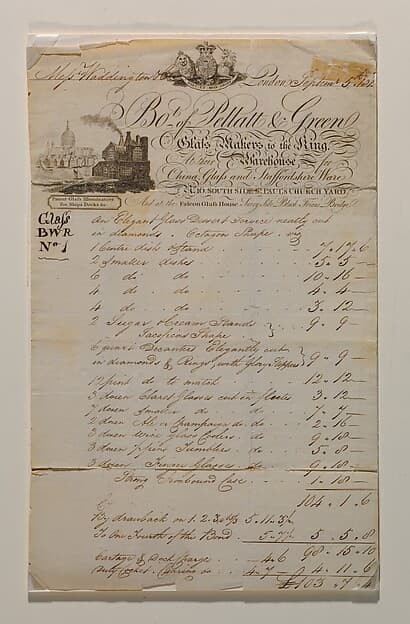 Messrs Waddington & Co London Septemr
Bot. of Pellatt & Green
Glass Makers to the King.
At their Warehouse for
China, Glass and Staffordshire Ware
No. 16, SOUTH SIDE ST. PAUL'S CHURCH YARD.
And at the Falcon Glass House Surry Side Black Friars Bridge
Patent Glass Illuminators
for Ships Decks &c.
Glass
BWR
No. 1
An Elegant Glass Dessert Service neatly cut
in diamonds - Octagon Shape - viz
1 Centre dish & Stand 7 - 17 - 6
2 Smaller dishes 5 - 5 -
6 do do 10 - 16
4 do do 4 - 4 -
4 do do 3 - 12
2 Sugar & Cream Stands
Shape 9 - 9 -
6 quart Decanters Elegantly cut
in diamonds & Rings with Stoppers 9 - 9 -
12 pint do to match 12 - 12 -
3 dozen Claret Glasses cut in flutes 3 - 12
7 dozen smaller do do 7 - 7
2 dozen Ale or Champaign do do 2 - 16 -
3 dozen Wine Glass Coolers do 9 - 18 -
3 dozen Tumblers do 5 - 8 -
3 dozen Finger Glasses do 9 - 18 -
Strong Ironbound Case 1 - 18 -
£ 104 . 1 . 6
By drawback on 1. 2. 3 5 . 11 . 3½
To One Fourth of the Bond 5 - 7½ 5 . 5 . 8
98 . 15 . 10
Cartage & Dock Charge 4 . 6
4 - 7 4 . 11 . 6
£ 103 . 7 . 4